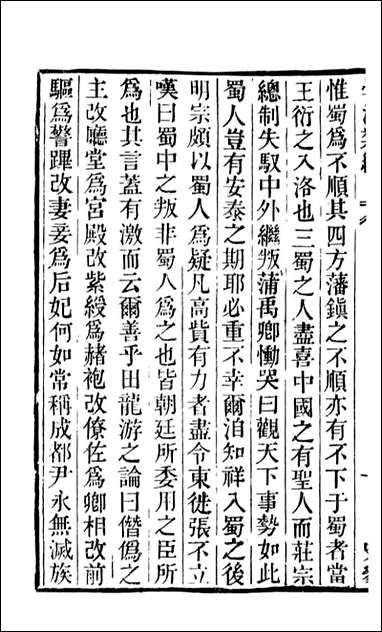 惟蜀爲不順其四方藩鎭之不順亦有不下于蜀者當
王衍之入洛也三蜀之人盡喜中國之有聖人而莊宗
總制失馭中外繼叛蒲禹卿慟哭曰觀天下事勢如此
蜀人豈有安泰之期耶必重不幸爾洎知祥入蜀之後
明宗頗以蜀人爲疑凡高貲有力者盡令東徙張不立
嘆曰蜀中之叛非蜀人爲之也皆朝廷所委用之臣所
爲也其言蓋有激而云爾善乎田龍游之論曰僭僞之
主改廳堂爲宮殿改紫綬爲赭袍改僚佐爲卿相改前
驅爲警蹕改妻妾爲后妃何如常稱成都尹永無滅族